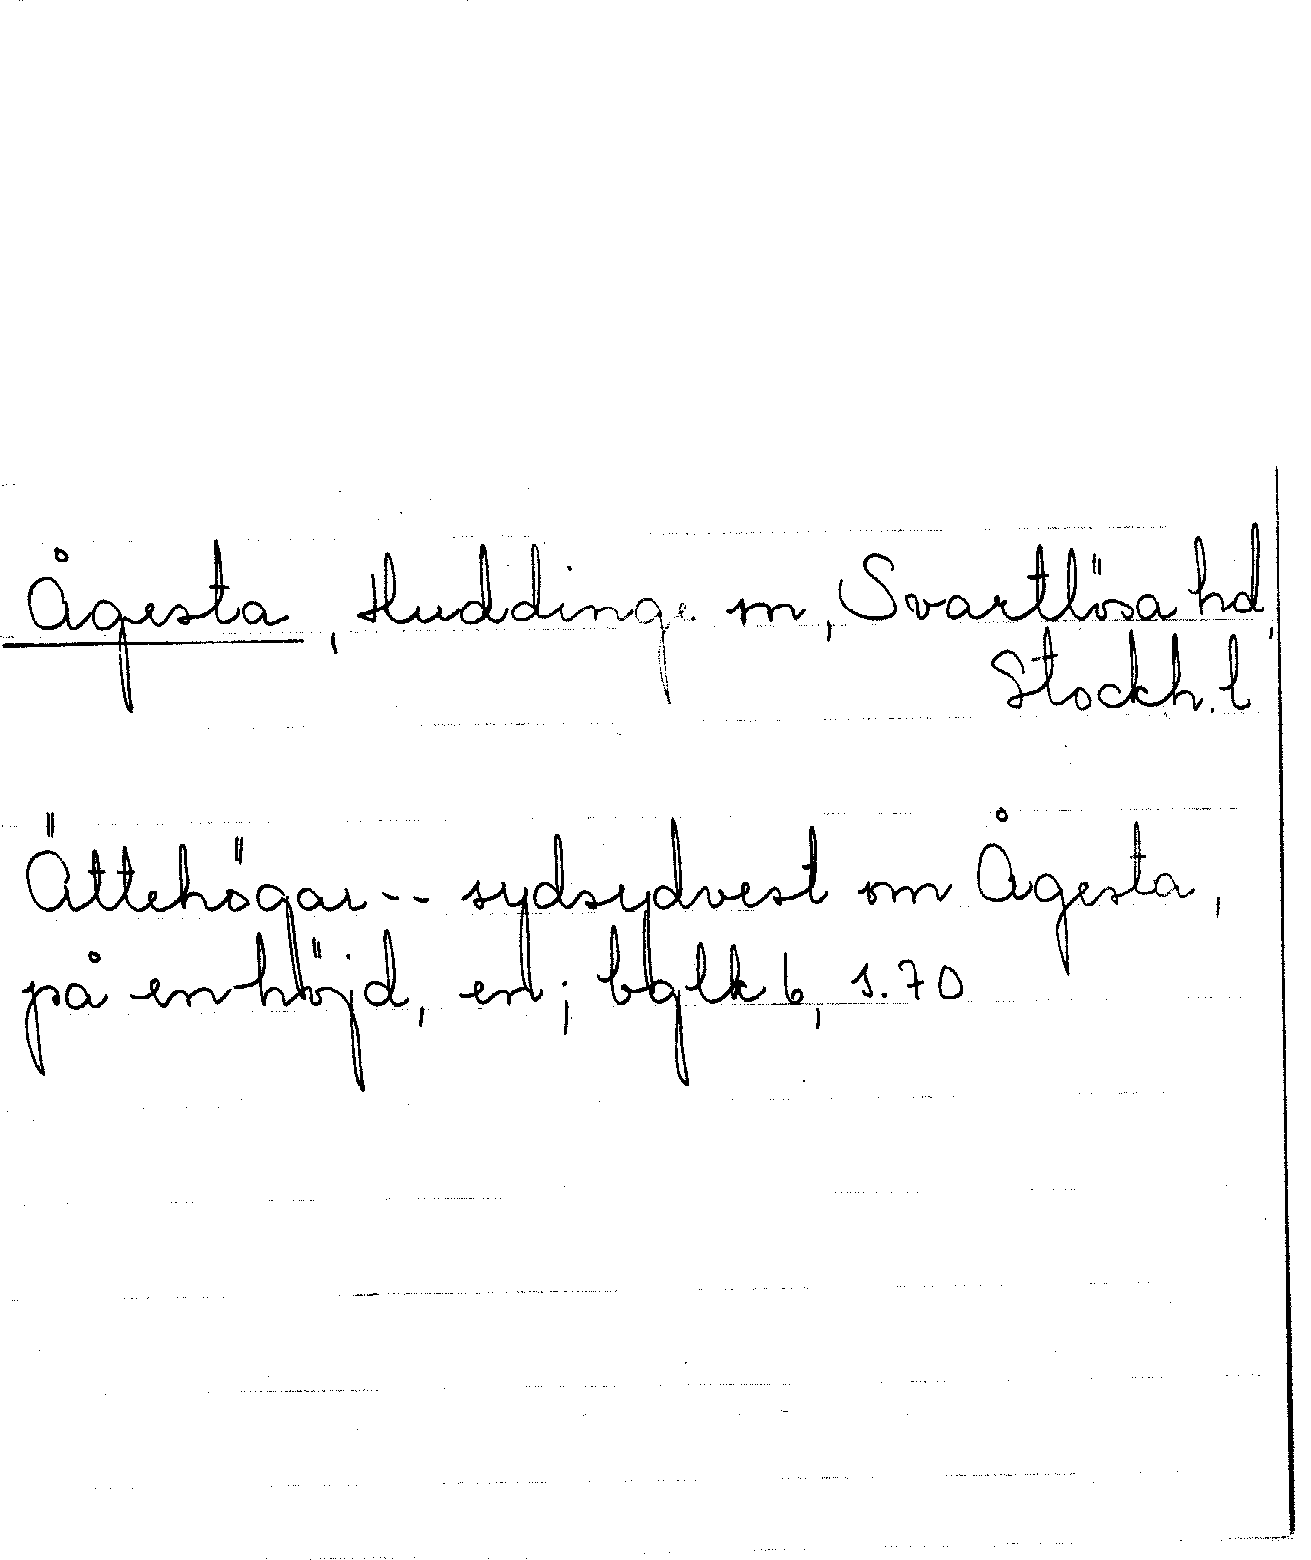 Ågesta, Huddinge sn, Svartlösa hd,
Stockh. l
Ättehögar -- sydsydvest om Ågesta,
på en höjd, en; bglk 6, s. 70